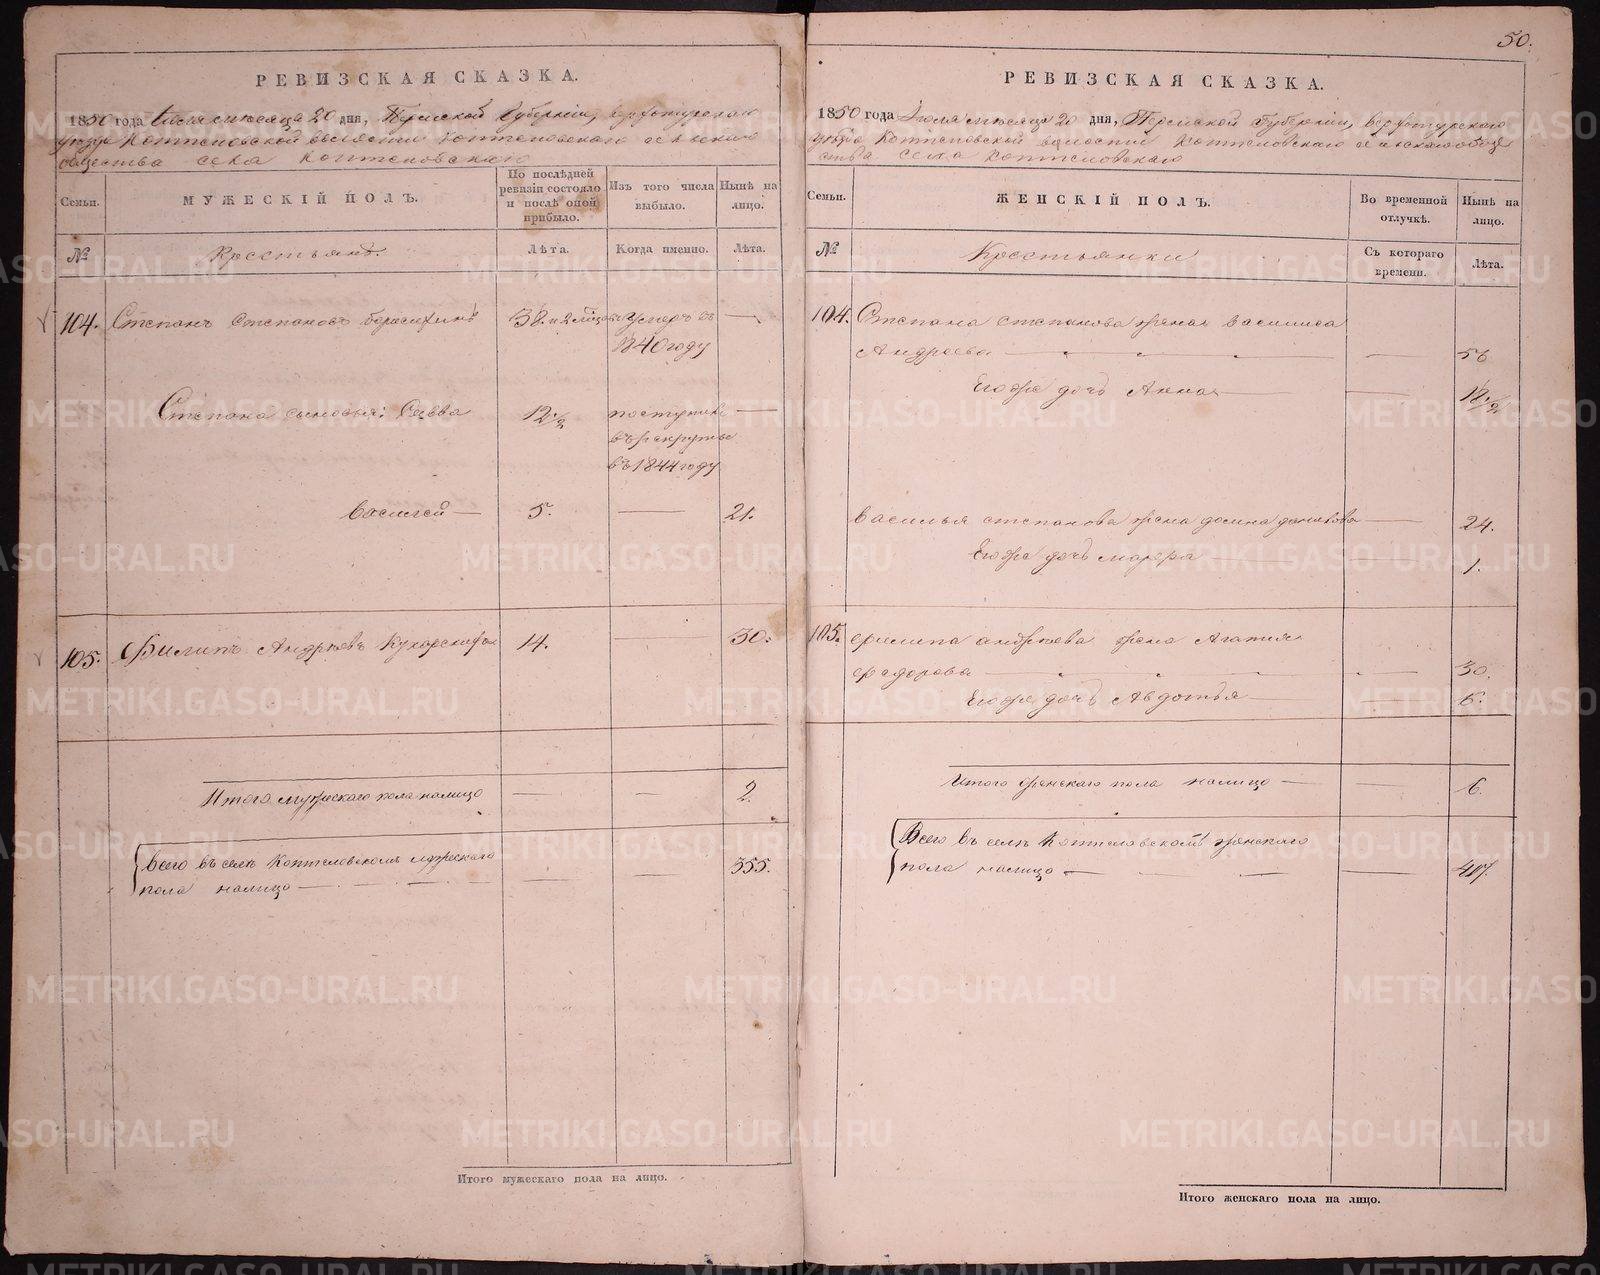 50.
РЕВИЗСКАЯ СКАЗКА.
1850 года Іюля мѣсяца 20 дня, Пермской Губерніи, Верхотурскаго
уѣзда Коптеловской волости Коптеловскаго сельскаго
общества села Коптеловскаго
Семьи.
МУЖЕСКІЙ ПОЛЪ.
По послѣдней
ревизіи состояло
и послѣ оной
прибыло.
Изъ того числа
выбыло.
Нынѣ на
лицо.
№
Крестьянъ
Лѣта.
Когда именно.
Лѣта.
104. Степанъ Степановъ 38. и 2 умеръ въ —
1840 году
Степана сыновья: Савва 12 1/2 поступилъ —
въ рекруты
въ 1844 году
Василей — 5. — 21.
105. Филипъ Андрѣевъ 14. — 30.
Итого мужескаго пола налицо — — 2.
Всего въ селѣ Коптеловскомъ мужескаго
пола налицо — — — 355.
Итого мужескаго пола на лицо.
РЕВИЗСКАЯ СКАЗКА.
1850 года Іюля мѣсяца 20 дня, Пермской Губерніи, Верхотурскаго
уѣзда Коптеловской волости Коптеловскаго сельскаго обще
ства села Коптеловскаго
Семьи.
ЖЕНСКІЙ ПОЛЪ.
Во временной
отлучкѣ.
Нынѣ на
лицо.
№
Крестьянки
Съ котораго
времени.
Лѣта.
104. Степана Степанова жена Василиса
Андреева — — 56
Егоже дочь Анна — — 18 1/2
Василья Степанова жена — 24.
Егоже дочь — 1.
105. Филипа Андрѣева жена Агапия
Федорова — — 30.
Егоже дочь Авдотья — — 6.
Итого женскаго пола налицо — — 6.
Всего въ селѣ Коптеловскомъ женскаго
пола налицо — — 417.
Итого женскаго пола на лицо.
METRIKI.GASO-URAL.RU